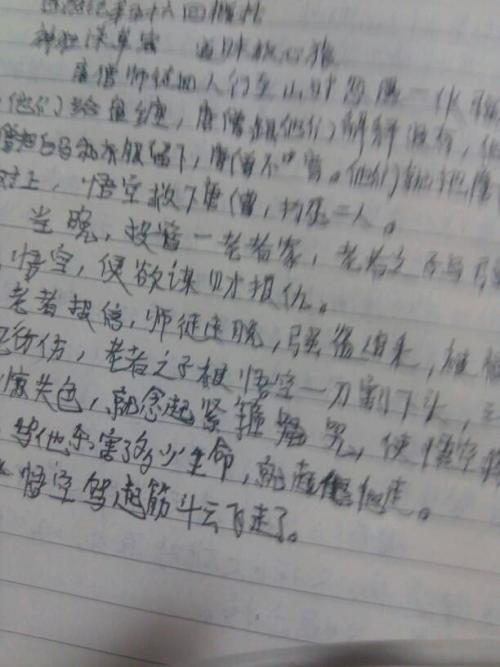 西游记第五十六回概括
神狂诛草寇 道昧放心猿
唐僧师徒四人行至山中忽遇一伙
他们给盘缠,唐僧跟他们解释没有,他
白马和衣服留下,唐僧不肯。他们就把唐
树上,悟空救下唐僧,打死二人。
当晚,投宿一老者家,老者之子
悟空,便欲谋财报仇。
老者报信,师徒逃脱,强盗追来,被
伤,老者之子被悟空一刀割下头,
惊失色,就念起紧箍咒,使悟空
他杀害了多少生命,就赶他走。
悟空驾起筋斗云飞走了。